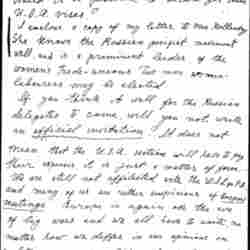 U.S.A. visas?
I enclose a copy of my letter to Mrs. Kollontay
She knows the Russian project movement
well and is a prominent leader of the
womens Trade-unions. Two more women
labourers may be elected.
If you think it well for the Russian
delegates to come, will you not write
an official invitation? It does not
mean that the U.S.A. sections will have to pay
their expenses it is just a matter of form.
We are still not affiliated with the W.I.L. f. P. &
and many of us are rather suspicious of
meetings. Europe is again on the eve
of big wars and we all have to unite, no
matter how we differ in our opinion on